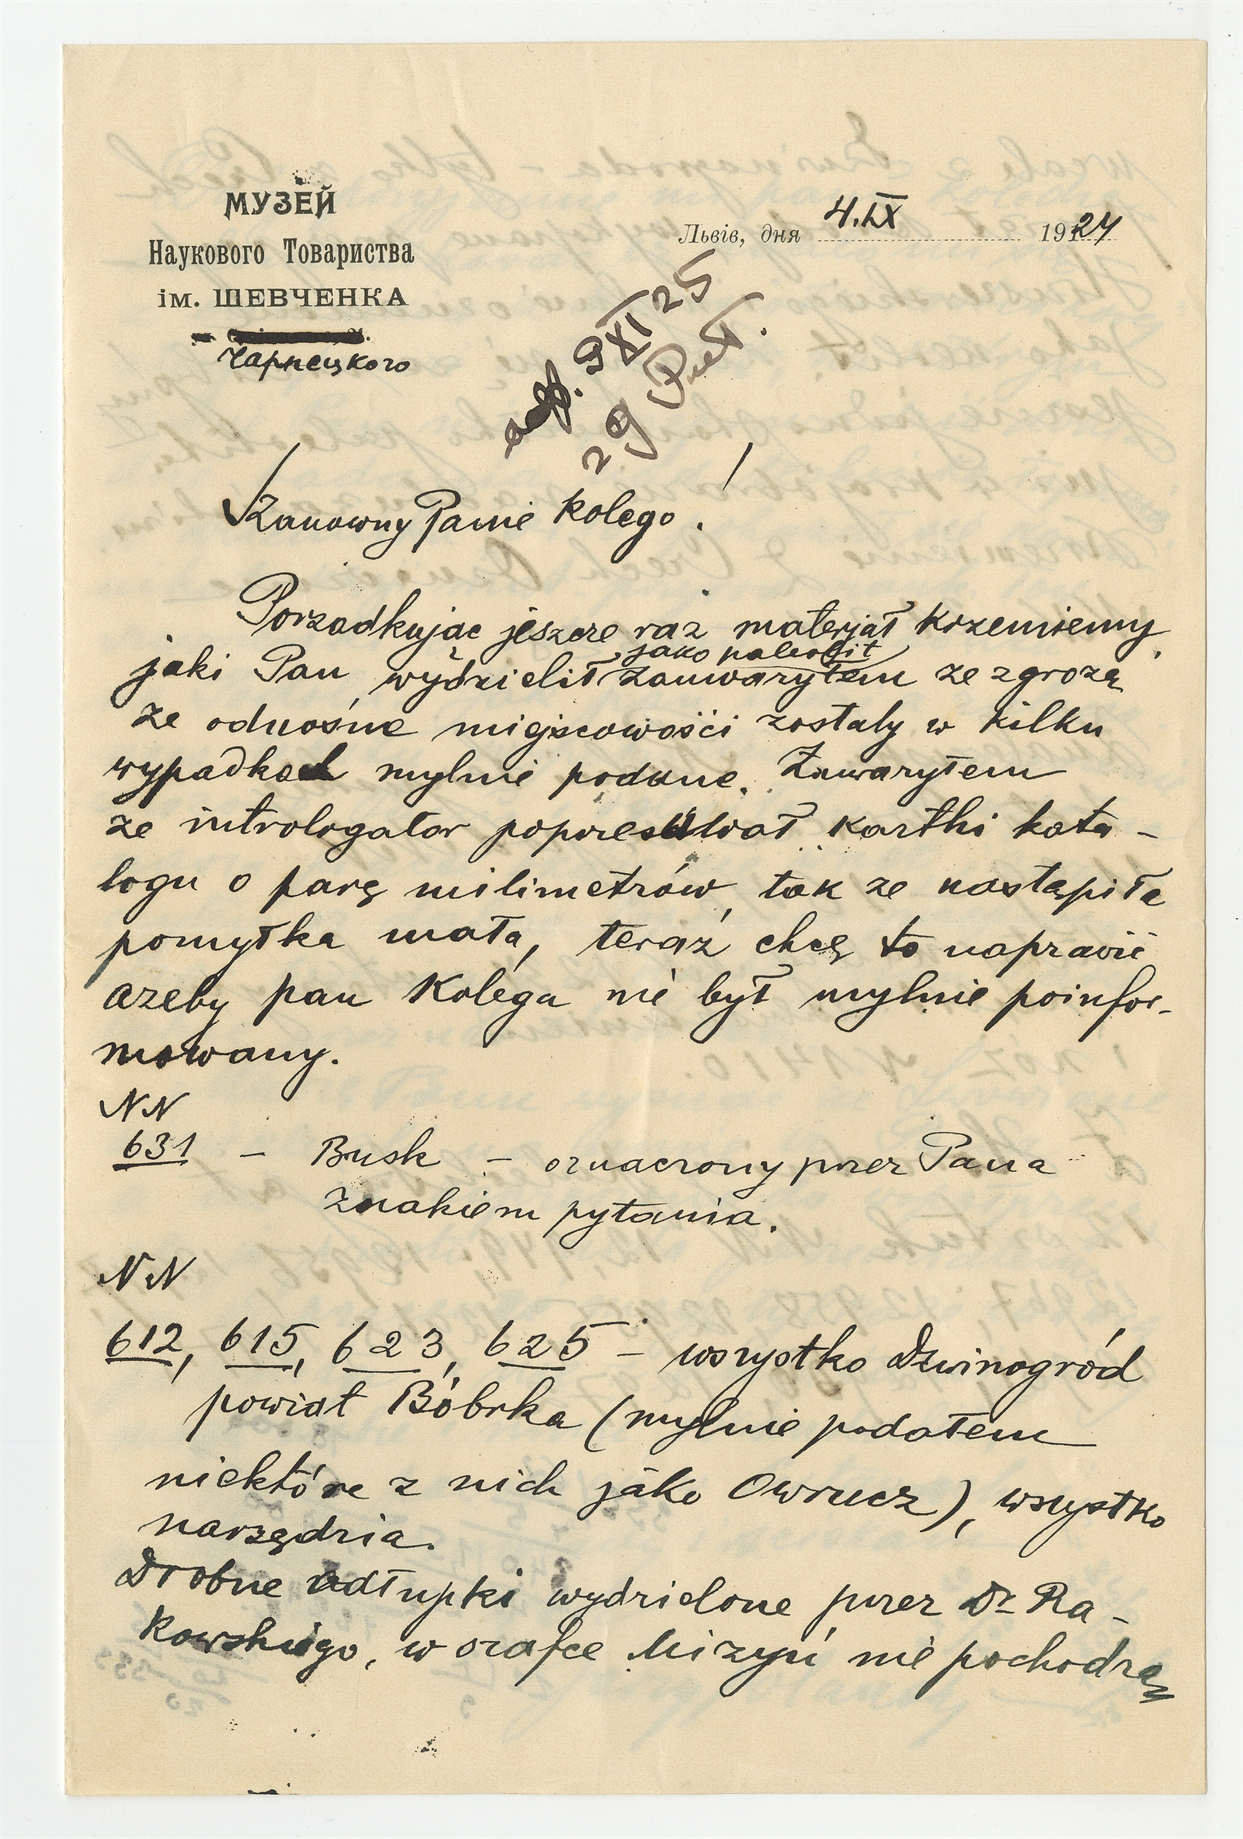 МУЗЕЙ
Наукового Товариства
ім. ШЕВЧЕНКА
Чарнецкого
Львів, дня 4.IX 1924
odp. 9 XI 25
29
Szanowny Panie Kolego!
Porządkując jeszcze raz materjał krzemienny,
jaki Pan wydzielił jako paleolit zauważyłem ze zgrozą
że odnośne miejscowości zostały w kilku
wypadkach mylnie podane. Zauważyłem
że intrologator poprzesuwał kartki kata-
logu o parę milimetrów, tak że nastąpiła
pomyłka mała, teraz chcę to naprawić
ażeby pan Kolega nie był mylnie poinfor-
mowany.
NN
631 – Busk – oznaczony przez Pana
znakiem pytania.
NN
612, 615, 623, 625 – wszystko Dzwinogród
powiat Bóbrka (mylnie podałem
niektóre z nich jako Owrucz), wszystko
narzędzia.
Drobne odłupki wydzielone przez Dr Ra-
kowskiego, w szafce Miżyń nie pochodzą